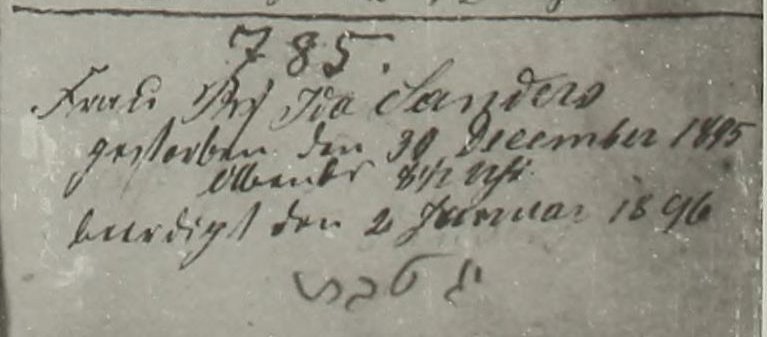 785.
Frau Ida Sanders
gestorben den 30 December 1895
Abends 8½ Uhr
beerdigt den 2 Januar 1896
טבת